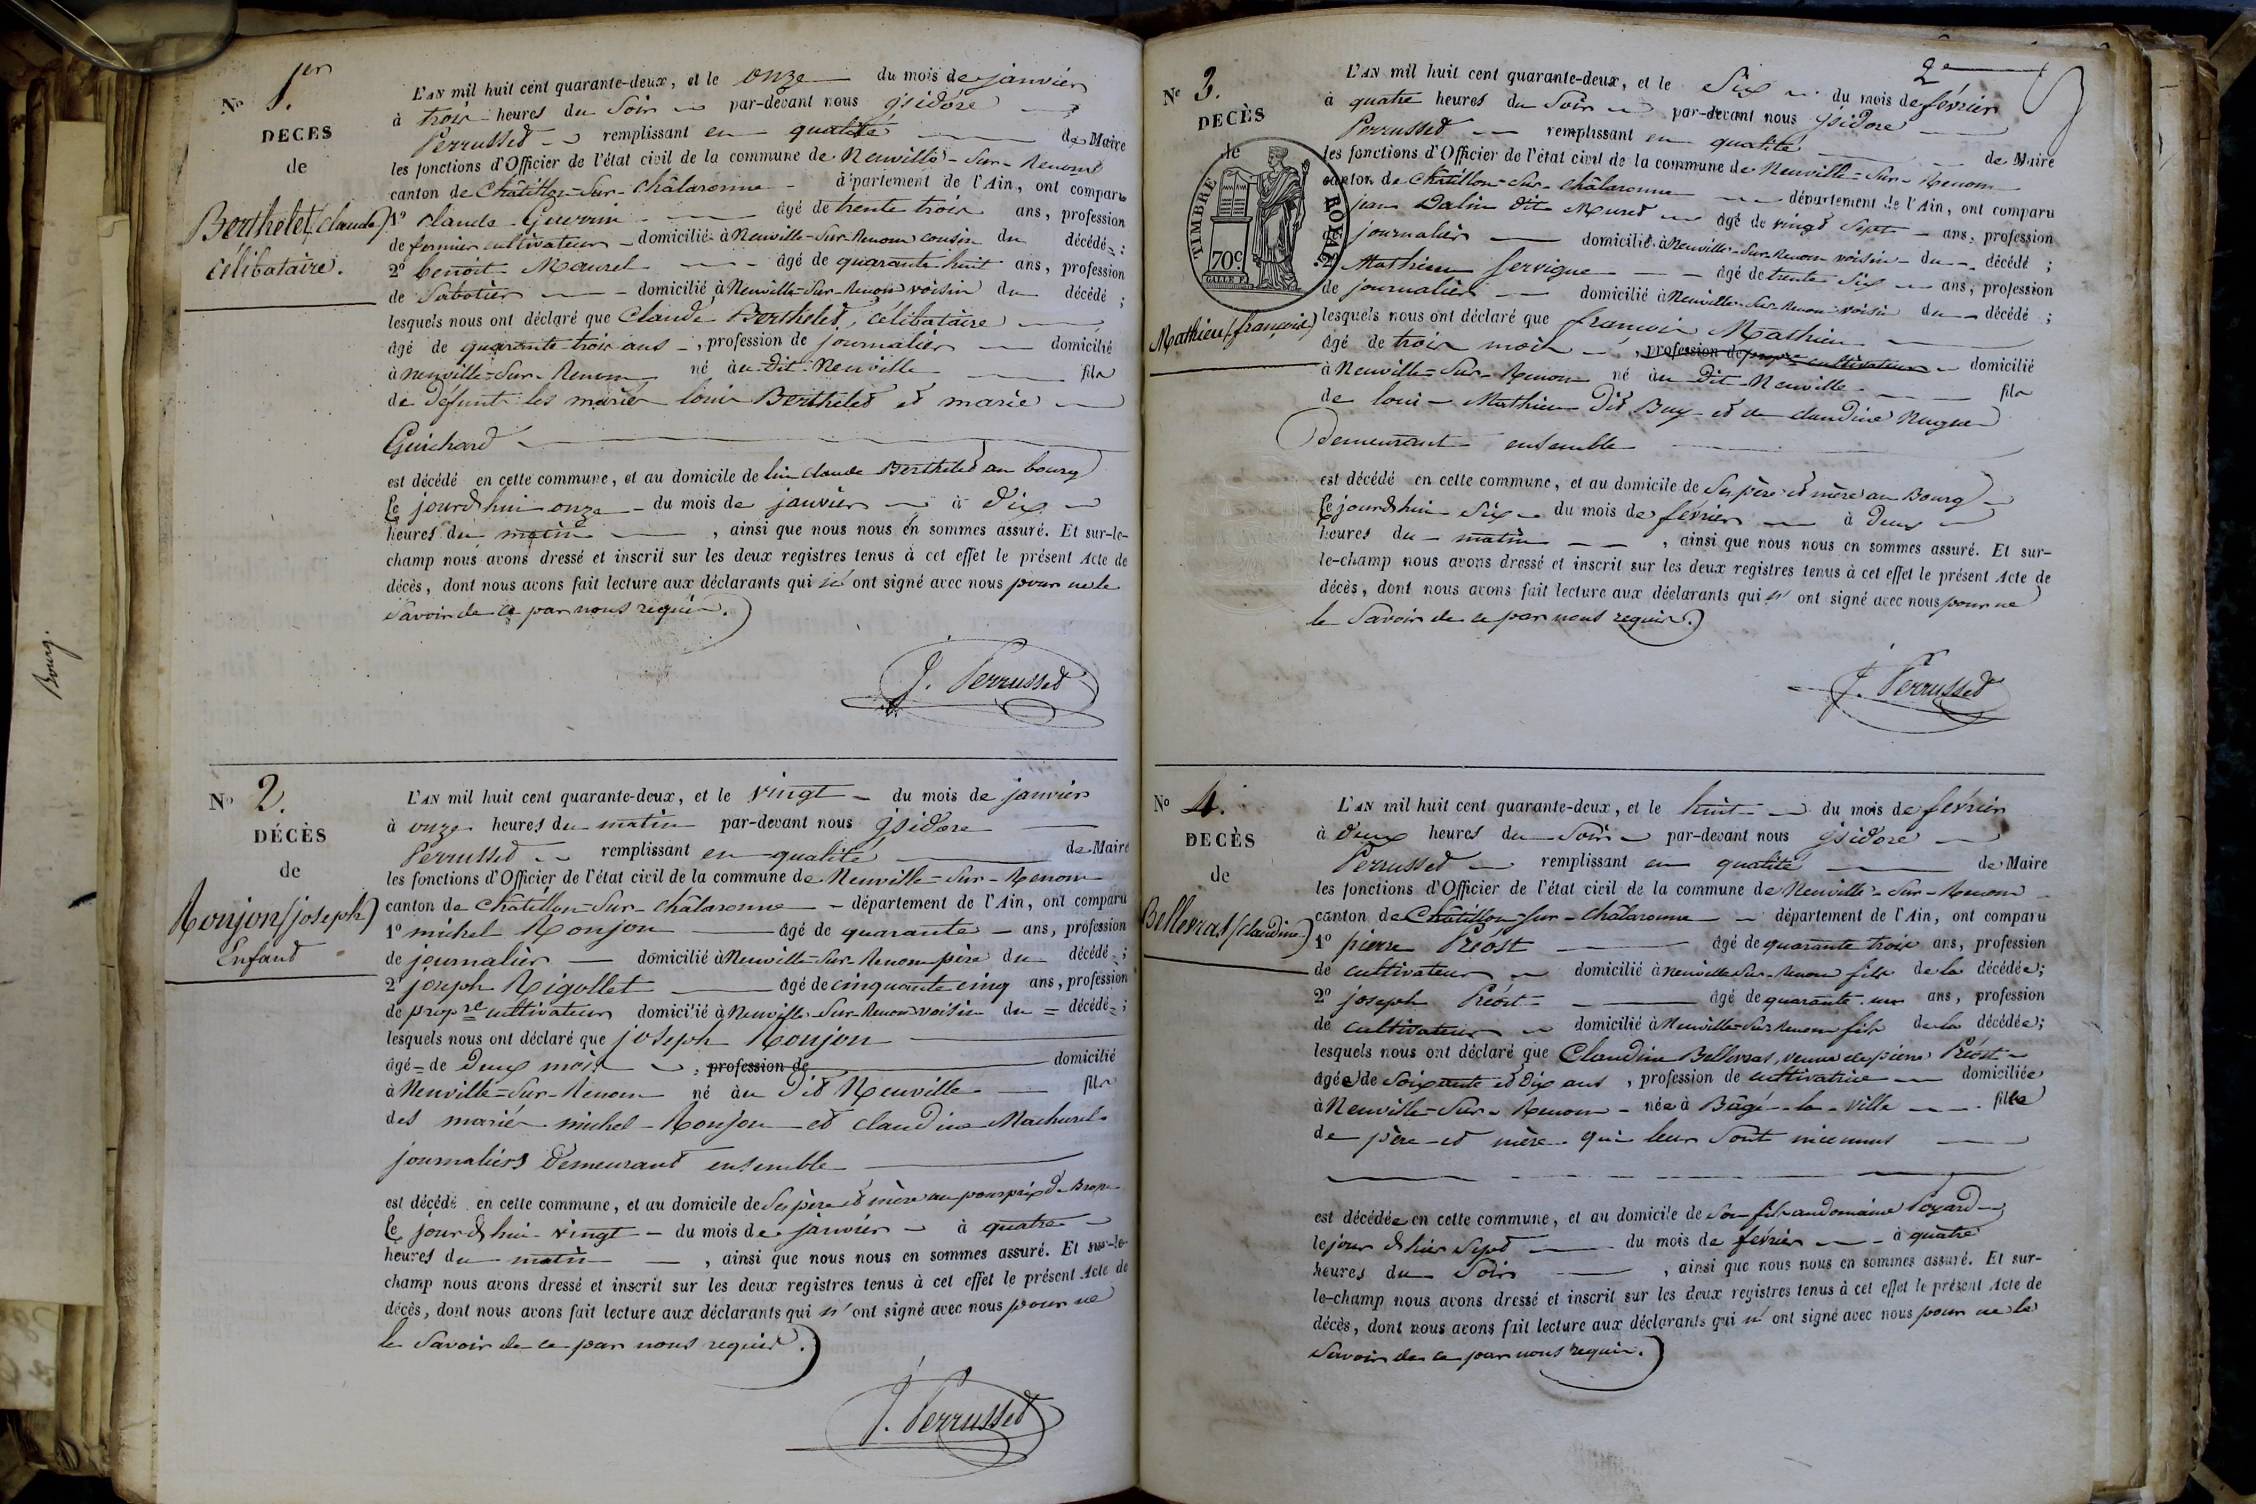 Bourg.
No 1er.
DÉCÈS
de
Berthelet (Claude)
célibataire.
L'AN mil huit cent quarante-deux, et le onze du mois de janvier
à trois heures du Soir par-devant nous ysidore
Perrussed remplissant en qualité de Maire
les fonctions d'Officier de l'état civil de la commune de Neuville-Sur-Renom
canton de Châtillon-Sur-Châlaronne département de l'Ain, ont comparu
1o Claude Guerrin âgé de trente trois ans, profession
de fermier cultivateur domicilié à Neuville-Sur-Renom cousin du décédé;
2o benoit Maurel âgé de quarante huit ans, profession
de Sabotier domicilié à Neuville-Sur-Renom voisin du décédé;
lesquels nous ont déclaré que Claude Bertheled, célibataire
âgé de quarante trois ans, profession de journalier domicilié
à neuville-Sur-Renom né au-Dit-Neuville fils
de Défunt les mariés louis Bertheled et marie
Guichard
est décédé en cette commune, et au domicile de lui Claude Bertheled au bourg
Ce jourd'hui onze du mois de janvier à dix
heures du matin, ainsi que nous nous en sommes assuré. Et sur-le-
champ nous avons dressé et inscrit sur les deux registres tenus à cet effet le présent Acte de
décès, dont nous avons fait lecture aux déclarants qui n'ont signé avec nous pour ne le
Savoir de ce par nous requis.
J. Perrussed
No 2.
DÉCÈS
de
Ronjon (joseph)
Enfand
L'AN mil huit cent quarante-deux, et le vingt du mois de janvier
à onze heures du matin par-devant nous ysidore
Perrussed remplissant en qualité de Maire
les fonctions d'Officier de l'état civil de la commune de Neuville-Sur-Renom
canton de Châtillon-Sur-Châlaronne département de l'Ain, ont comparu
1o michel Ronjon âgé de quarante ans, profession
de journalier domicilié à Neuville-Sur-Renom père du décédé;
2o joseph Rigollet âgé de cinquante cinq ans, profession
de propre cultivateur domicilié à Neuville-Sur-Renom voisin du décédé;
lesquels nous ont déclaré que joseph Ronjon
âgé de Deux mois, profession de domicilié
à Neuville-Sur-Renom né au Dit Neuville fils
des mariés michel Ronjon et claudine Machurel
journaliers Demeurant ensemble
est décédé en cette commune, et au domicile de Ses père et mère au pourprix de
Ce jourd'hui vingt du mois de janvier à quatre
heures du matin, ainsi que nous nous en sommes assuré. Et sur-le-
champ nous avons dressé et inscrit sur les deux registres tenus à cet effet le présent Acte de
décès, dont nous avons fait lecture aux déclarants qui n'ont signé avec nous pour ne
le Savoir de ce par nous requis.
J. Perrussed
2e
No 3.
DÉCÈS
de
TIMBRE ROYAL
70c
Mathieu (françois)
L'AN mil huit cent quarante-deux, et le Six du mois de février
à quatre heures du Soir par-devant nous ysidore
Perrussed remplissant en qualité de Maire
les fonctions d'Officier de l'état civil de la commune de Neuville-Sur-Renom
canton de Châtillon-Sur-Châlaronne département de l'Ain, ont comparu
jean Dalin dit Mured âgé de vingt Sept ans, profession
de journalier domicilié à Neuville-Sur-Renom voisin du décédé;
2 Mathieu Servigne âgé de trente Six ans, profession
de journalier domicilié à Neuville-Sur-Renom voisin du décédé;
lesquels nous ont déclaré que françois Mathieu
âgé de trois mois, profession de propre cultivateur domicilié
à Neuville-Sur-Renom né au Dit-Neuville fils
de louis Mathieu Dit Buy et de claudine
Demeurant ensemble
est décédé en cette commune, et au domicile de Ses père et mère au Bourg
Ce jourd'hui Six du mois de février à Deux
heures du matin, ainsi que nous nous en sommes assuré. Et sur-
le-champ nous avons dressé et inscrit sur les deux registres tenus à cet effet le présent Acte de
décès, dont nous avons fait lecture aux déclarants qui n'ont signé avec nous pour ne
le Savoir de ce par nous requis.
J. Perrussed
No 4.
DÉCÈS
de
Bellevras (Claudine)
L'AN mil huit cent quarante-deux, et le huit du mois de février
à Deux heures du Soir par-devant nous ysidore
Perrussed remplissant en qualité de Maire
les fonctions d'Officier de l'état civil de la commune de Neuville-Sur-Renom
canton de Châtillon-Sur-Châlaronne département de l'Ain, ont comparu
1o pierre Préost âgé de quarante trois ans, profession
de cultivateur domicilié à neuville Sur-Renom fils de la décédée;
2o joseph Préost âgé de quarante un ans, profession
de cultivateur domicilié à Neuville-Sur Renom fils de la décédée;
lesquels nous ont déclaré que Claudine Bellevras, veuve de pierre Préost
âgée de Soixante et Dix ans, profession de cultivatrice domiciliée
à Neuville-Sur-Renom née à Bâgé-la-ville fille
de père et mère qui leur Sont inconnus
est décédée en cette commune, et au domicile de Son fils au domaine Poyard
le jour d'hier Sept du mois de février à quatre
heures du Soir, ainsi que nous nous en sommes assuré. Et sur-
le-champ nous avons dressé et inscrit sur les deux registres tenus à cet effet le présent Acte de
décès, dont nous avons fait lecture aux déclarants qui n'ont signé avec nous pour ne le
Savoir de ce par nous requis.